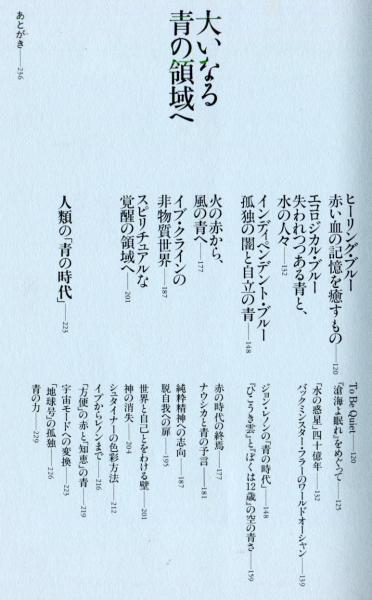 大いなる
青の領域へ
ヒーリング・ブルー
赤い血の記憶を癒すもの——120
To Be Quiet——120
『滄海よ眠れ』をめぐって——125
エコロジカル・ブルー
失われつつある青と、
水の人々——132
「水の惑星」四十億年——132
バックミンスター・フラーのワールドオーシャン——139
インディペンデント・ブルー
孤独の闇と自立の青——148
ジョン・レノンの「青の時代」——148
『ひこうき雲』と『ぼくは12歳』の空の青さ——159
火の赤から、
風の青へ——177
赤の時代の終焉——177
ナウシカと青の予言——181
イブ・クラインの
非物質世界——187
純粋精神への志向——187
脱自我への扉——195
スピリチュアルな
覚醒の領域へ——201
世界と自己とをわける壁——201
神の消失——204
シュタイナーの色彩方法——212
イブからレノンまで——216
「方便」の赤と「知恵」の青——219
人類の「青の時代」——223
宇宙モードへの変換——223
「地球号」の孤独——226
青の力——229
あとがき——236